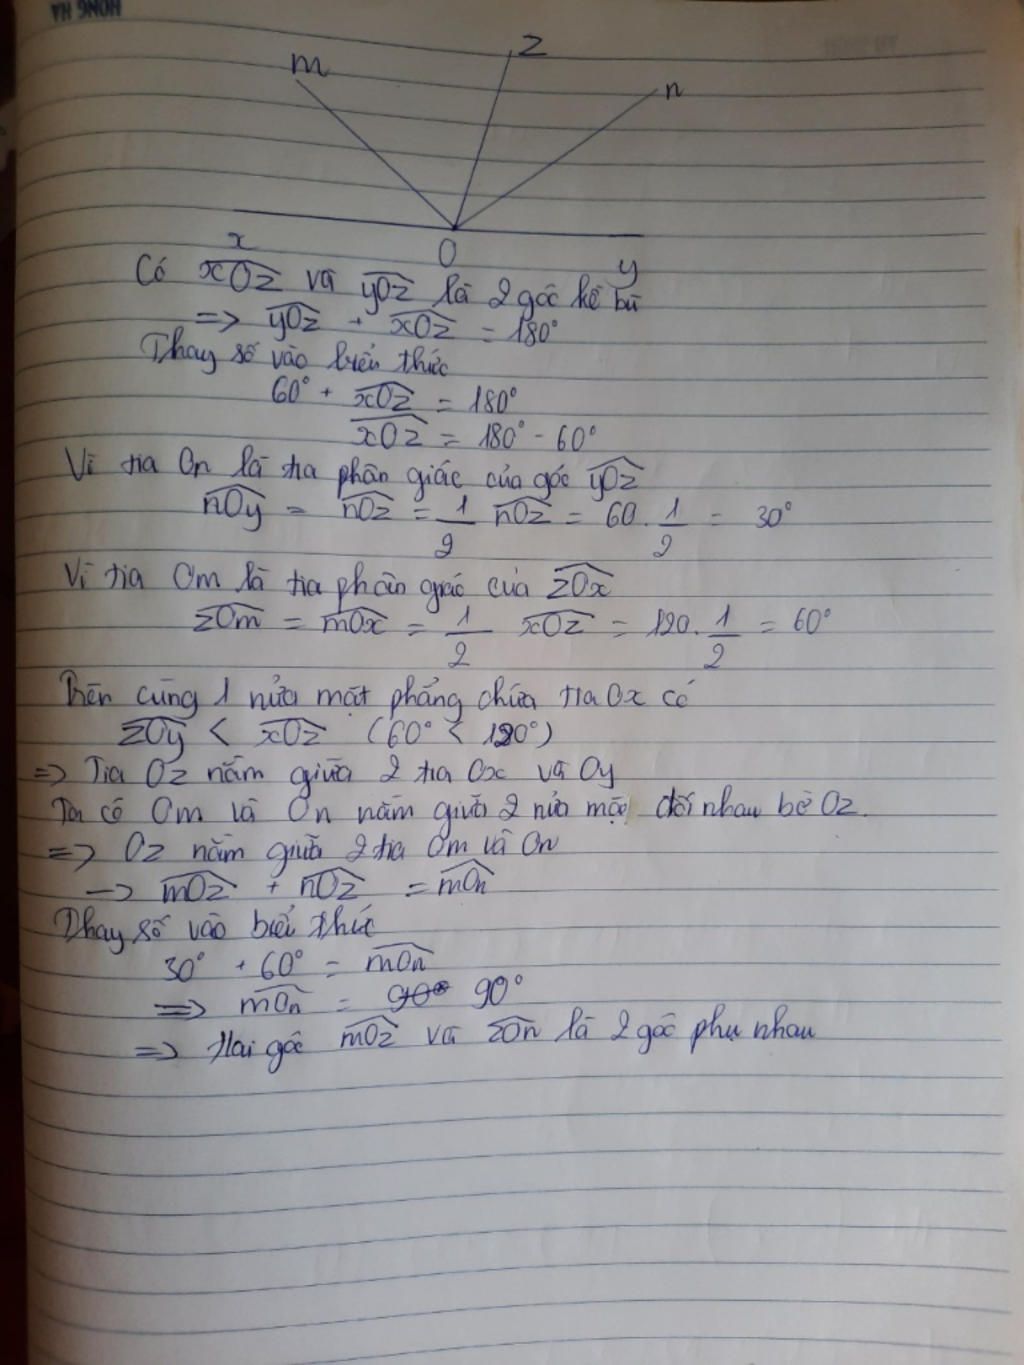 HỒNG HÀ
z
m
n
x
O
y
Có xOz và yOz là 2 góc kề bù
=> yOz + xOz = 180°
Thay số vào biểu thức
60° + xOz = 180°
xOz = 180° - 60°
Vì tia On là tia phân giác của góc yOz
nOy = nOz = 1/2 nOz = 60. 1/2 = 30°
Vì tia Om là tia phân giác của zOx
zOm = mOx = 1/2 xOz = 120. 1/2 = 60°
Trên cùng 1 nửa mặt phẳng chứa tia Ox có
zOy < xOz (60° < 120°)
=> Tia Oz nằm giữa 2 tia Ox và Oy
Ta có Om và On nằm giữa 2 nửa mặ đối nhau bờ Oz.
=> Oz nằm giữa 2 tia Om và On
-> mOz + nOz = mOn
Thay số vào biểu thức
30° + 60° = mOn
=> mOn = 90°
=> Hai góc mOz và zOn là 2 góc phụ nhau